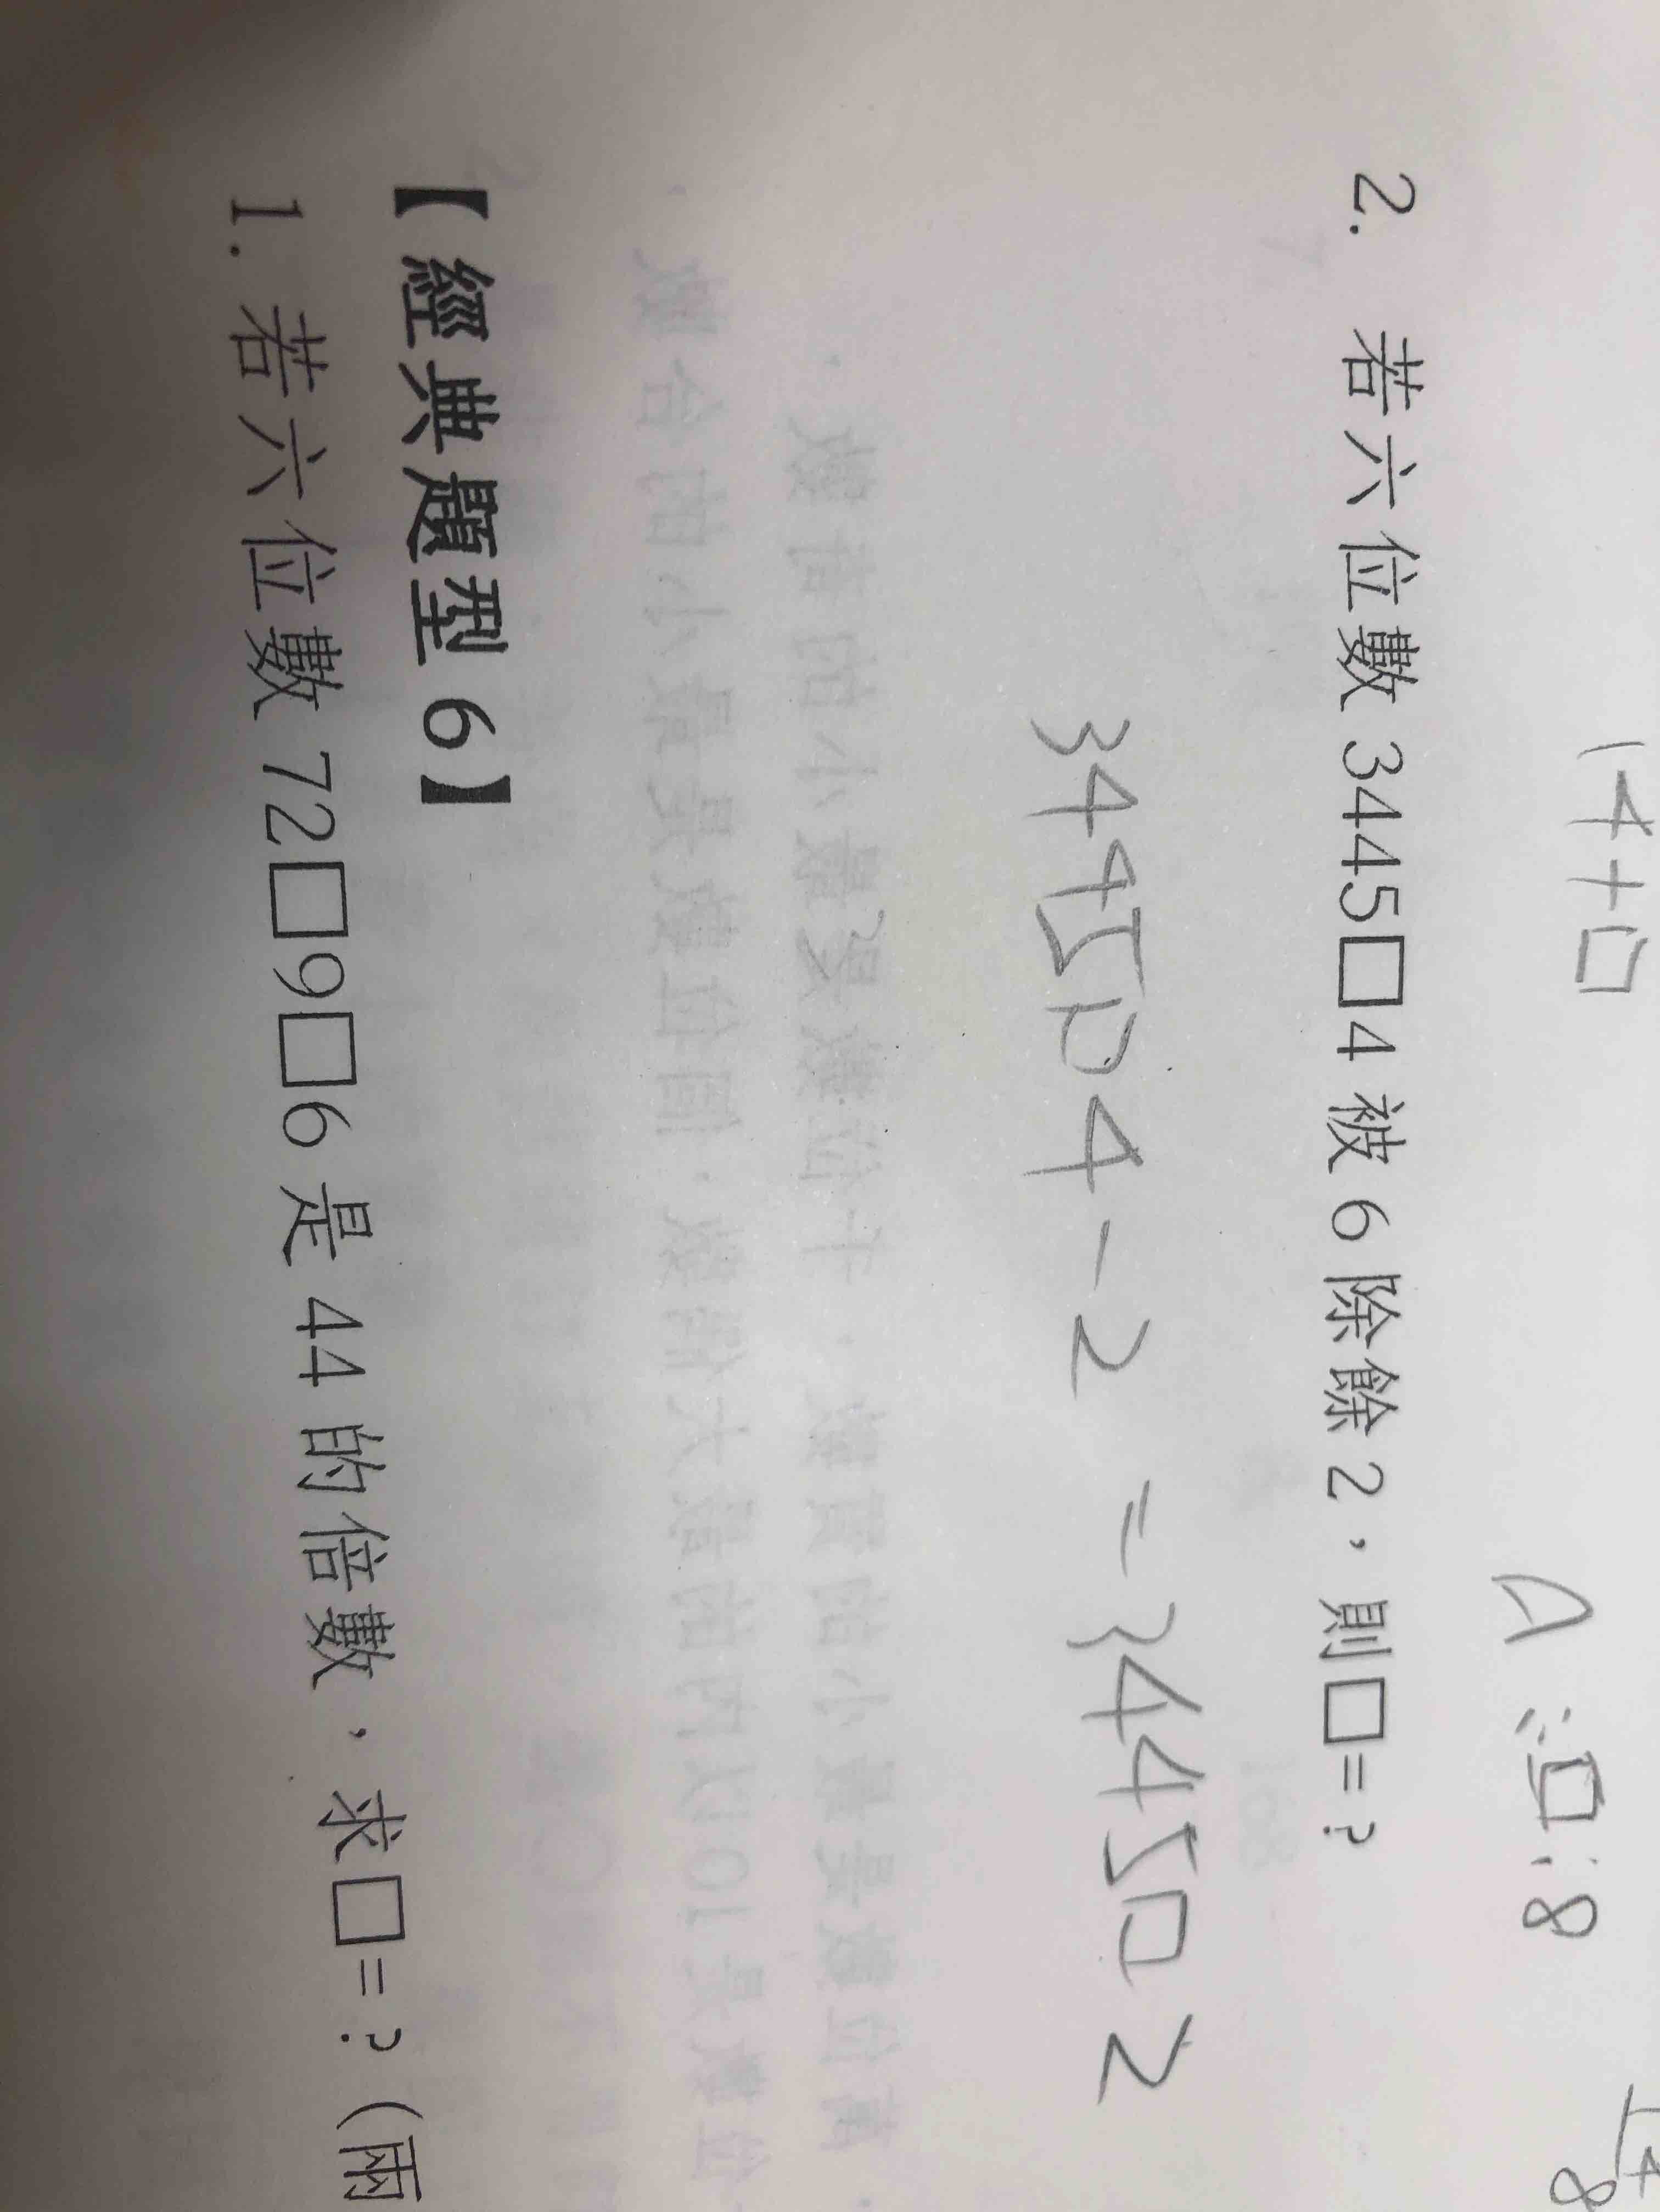 14+□
A:□:8
14
8
2. 若六位數3445□4被6除餘2，則□=?
3445□4-2=3445□2
【經典題型6】
1. 若六位數72□9□6是44的倍數，求□=?(兩